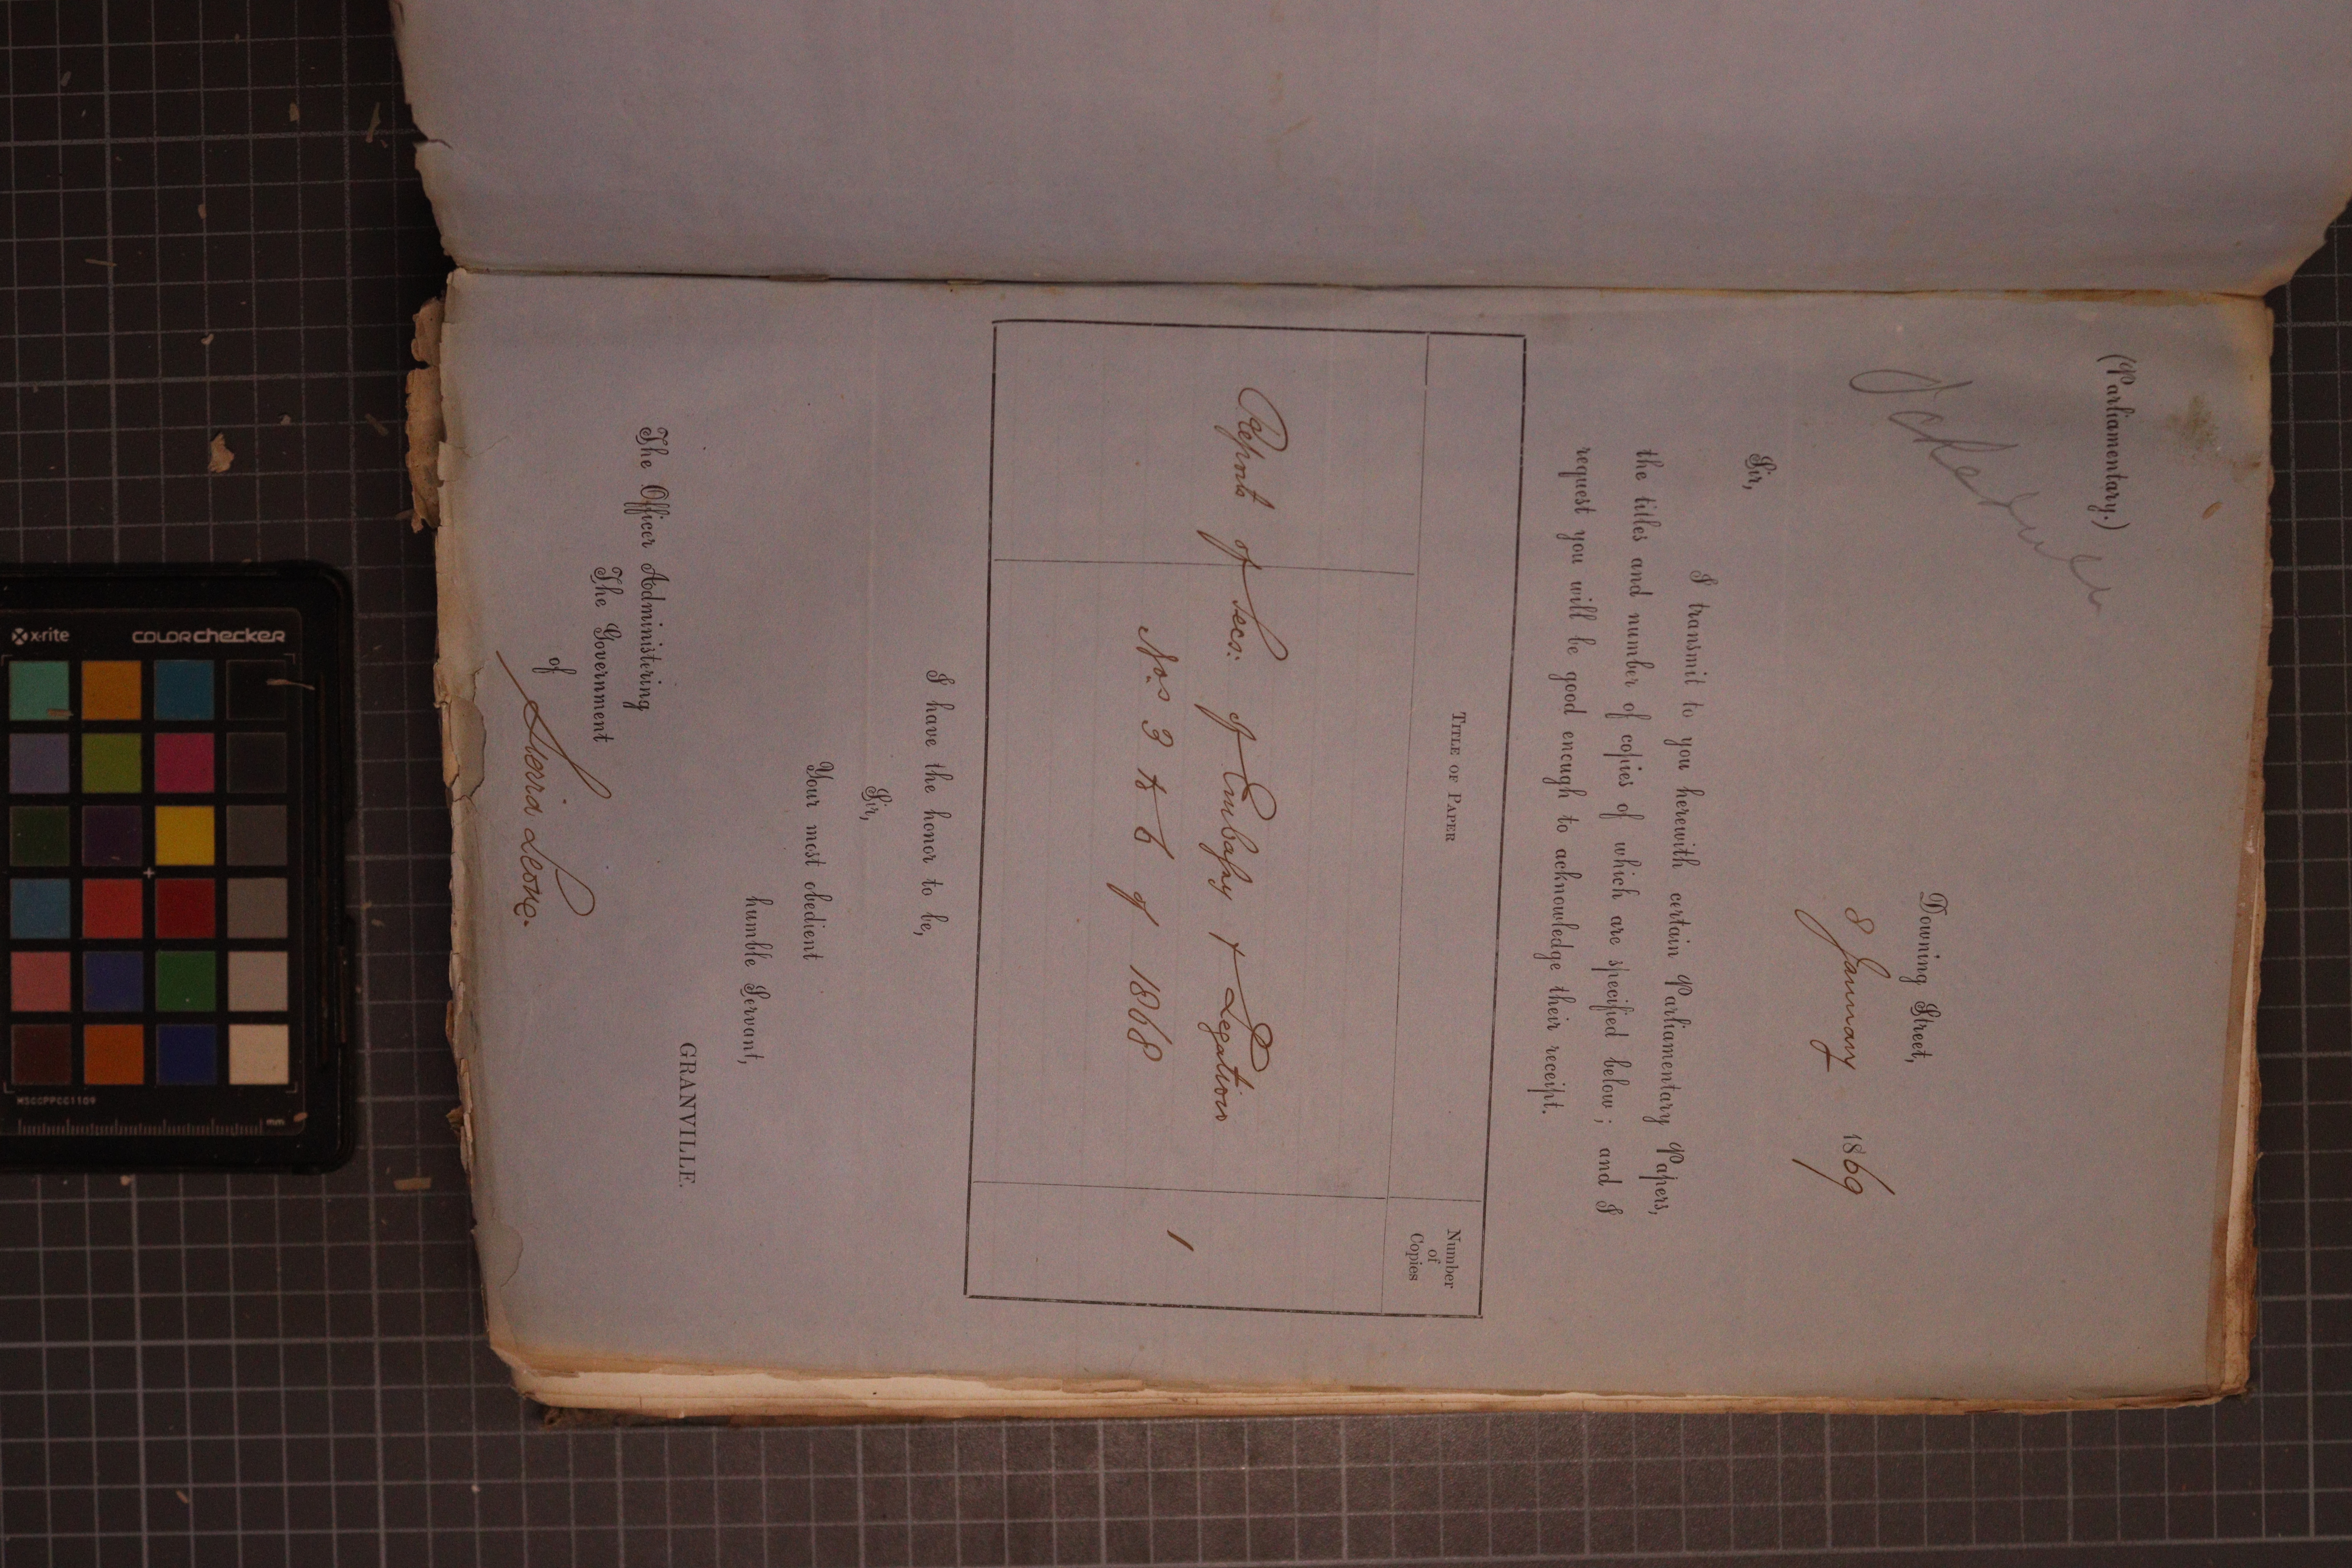 (Parliamentary.)
Downing Street,
8 January 1869
Sir,
I transmit to you herewith certain Parliamentary Papers,
the titles and number of copies of which are specified below; and I
request you will be good enough to acknowledge their receipt.
TITLE OF PAPER
Number
of
Copies
Reports of Secs: of Embassy & Legation
Nos 3 to 6 of 1868
1
I have the honor to be,
Sir,
Your most obedient
humble Servant,
GRANVILLE.
The Officer Administering
The Government
of Sierra Leone.
x-rite colorchecker
MSCCPPCC1109
mm